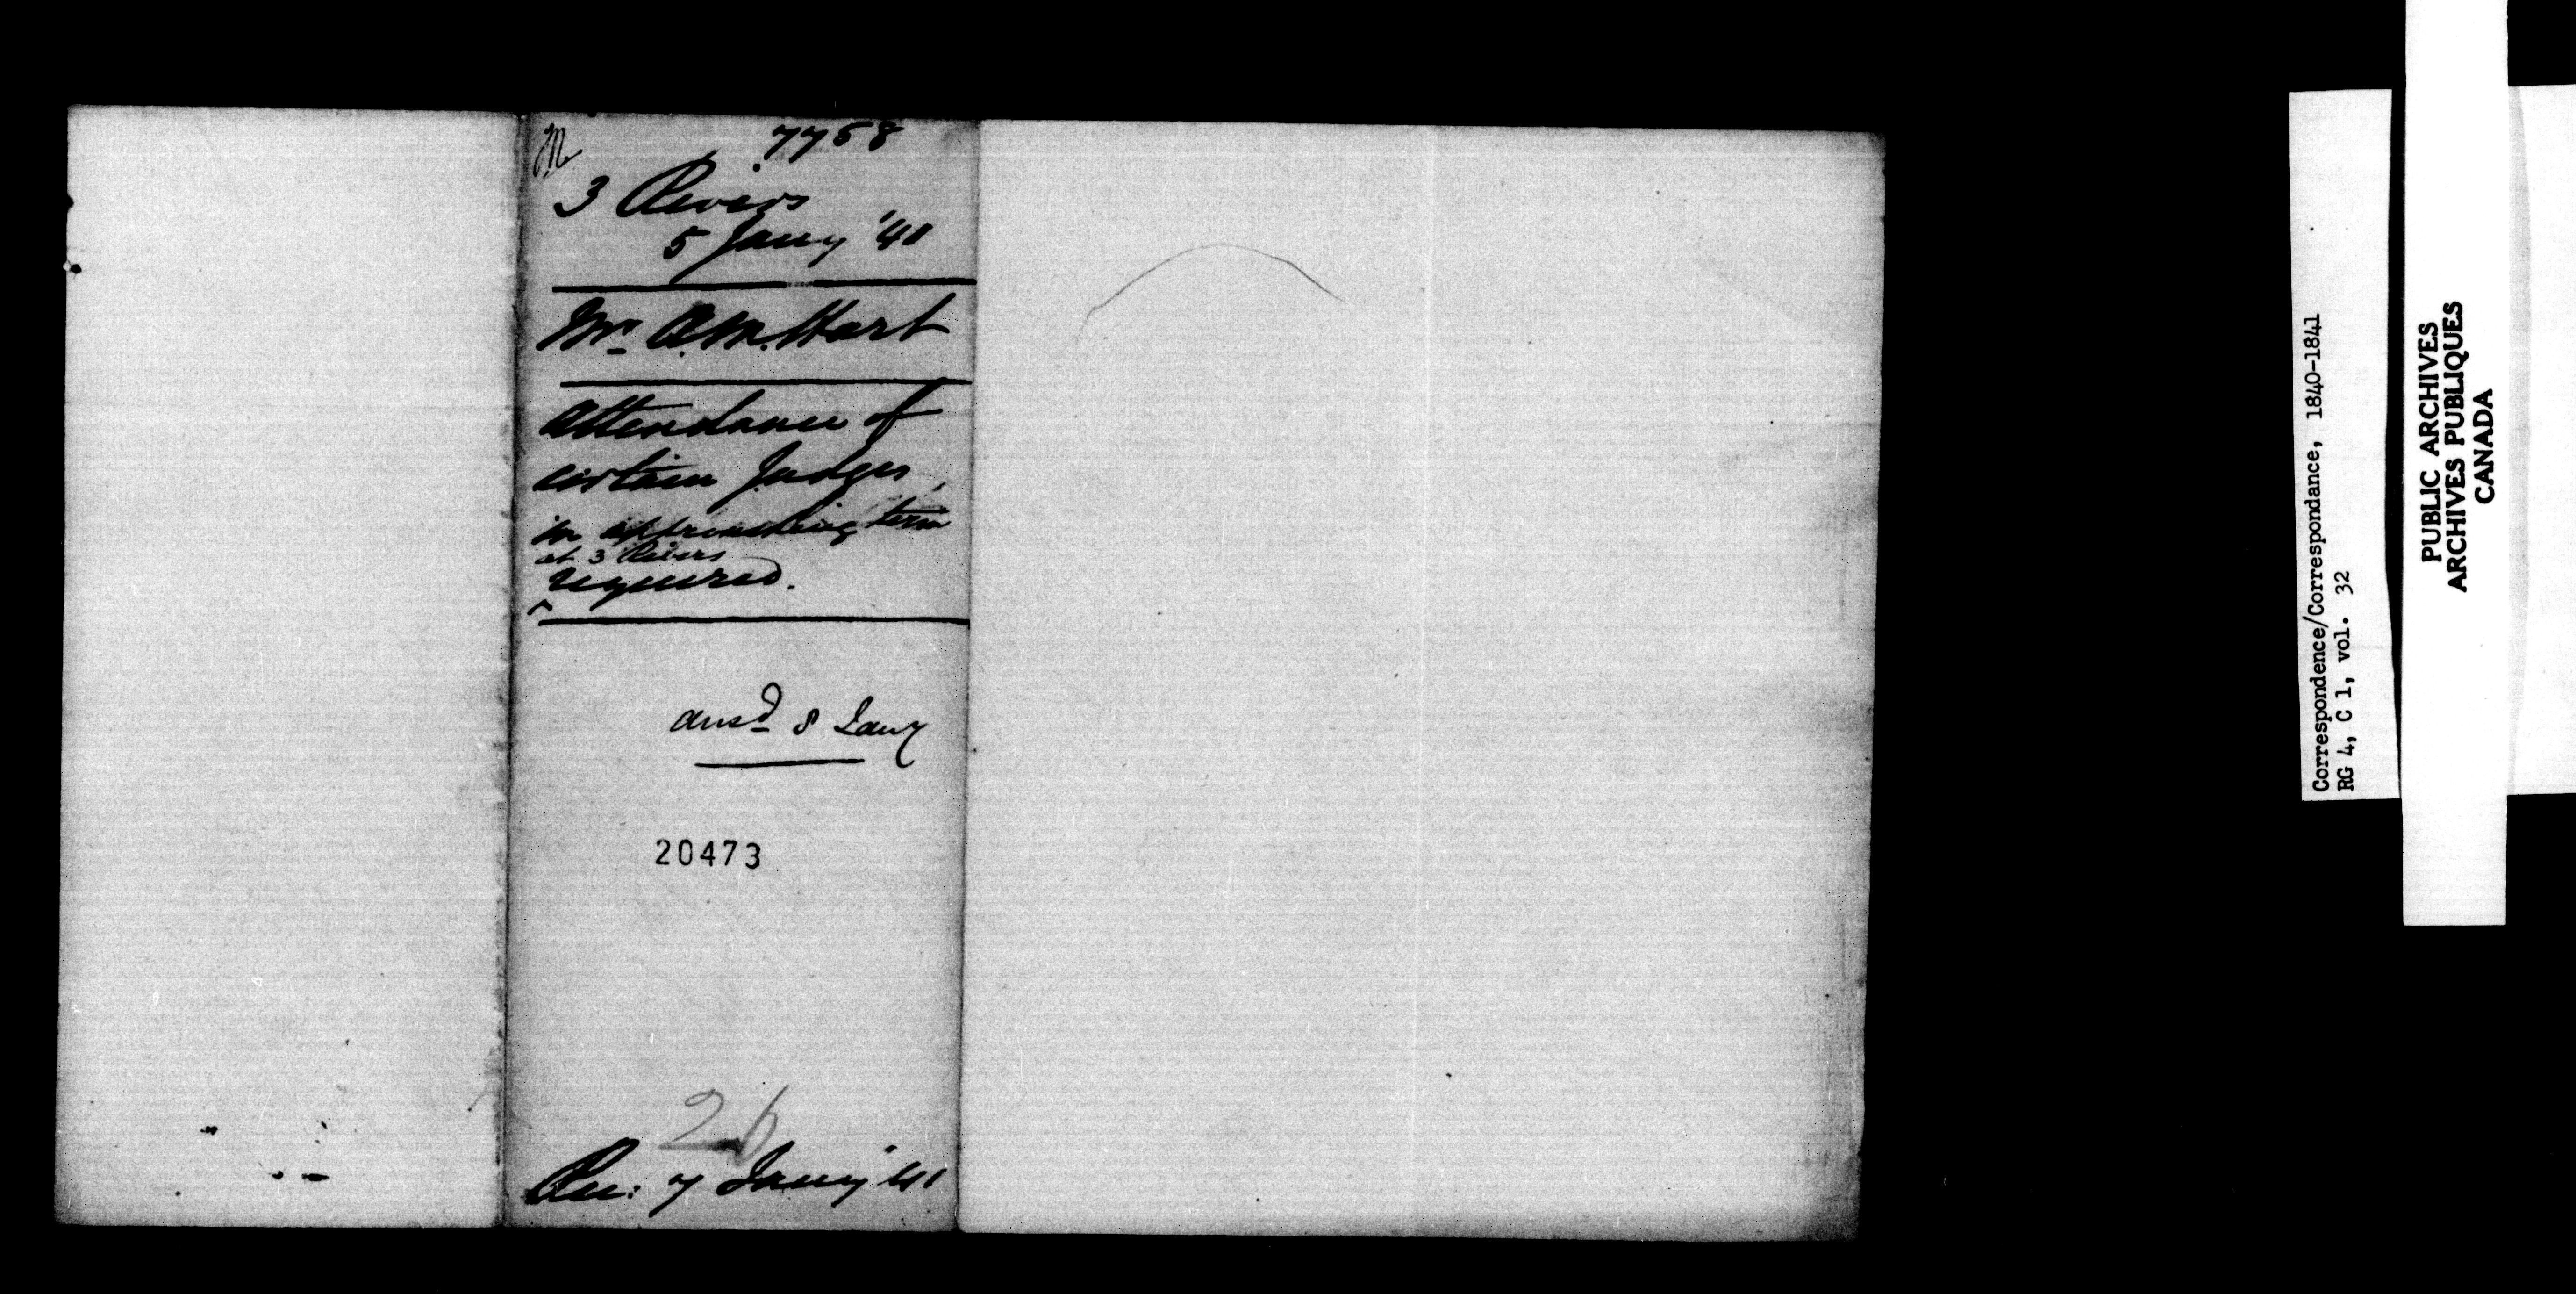 M
7758
3 Rivers
5 Jany '41
Mr. A. M. Hart
Attendance of
certain Judges,
in approaching term
at 3 Rivers
^ required.
ansd 8 Jany
20473
26
Rec: 7 Jany '41
Correspondence/Correspondance, 1840-1841
RG 4, C 1, vol. 32
PUBLIC ARCHIVES
ARCHIVES PUBLIQUES
CANADA